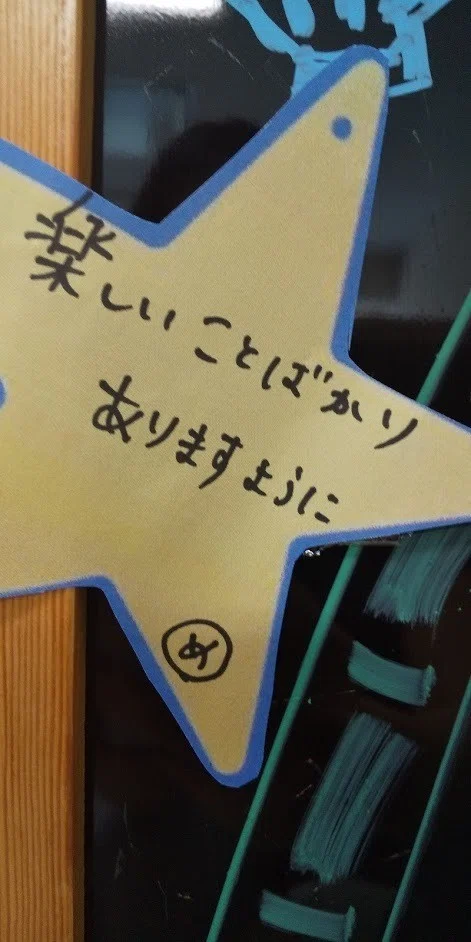 楽しいことばかり
ありますように